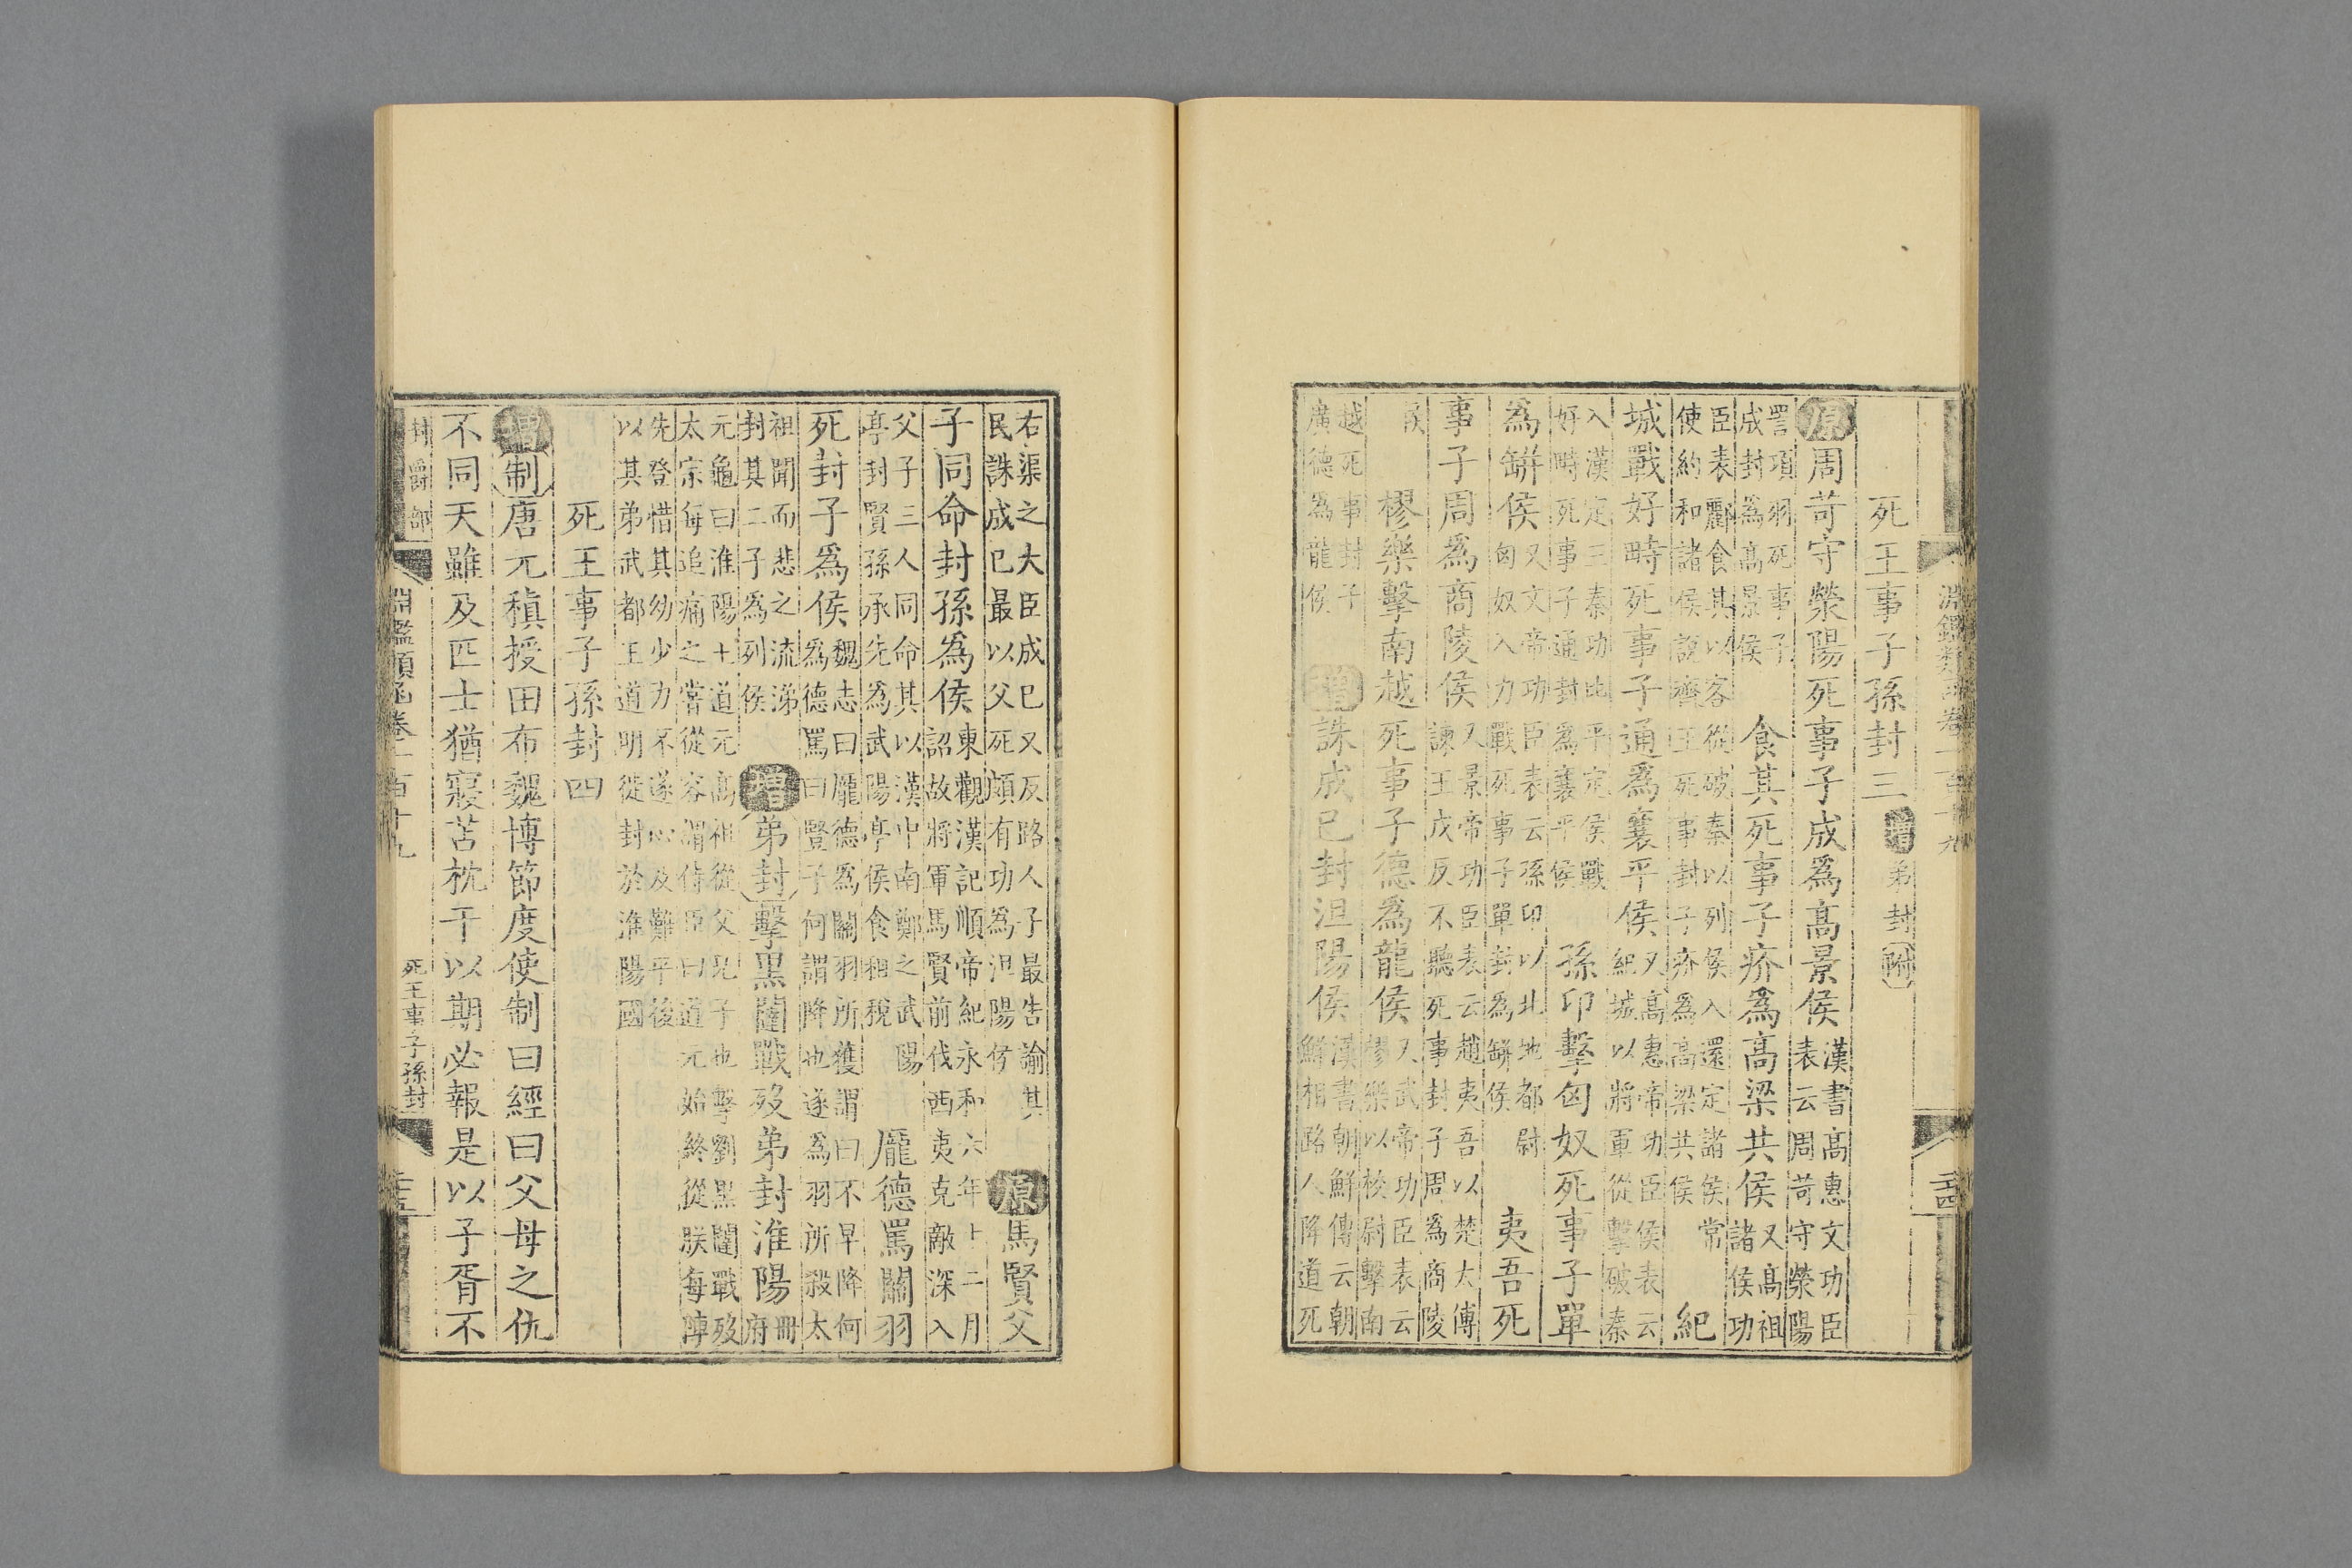 淵鑑類函卷一百十九
死王事子孫封三 增弟封附
原周苛守滎陽死事子成爲高景侯 漢書高惠文功臣 表云周苛守滎陽
詈項羽死事子 成封爲高景侯 食其死事子疥爲高梁共侯 又高祖 諸侯功
臣表酈食其以客從破秦以列侯入還定諸侯常 使約和諸侯說齊王死事封子疥爲高梁共侯 紀
城戰好畤死事子通爲襄平侯 又高惠帝功臣侯表云 紀城以將軍從擊破秦
入漢定三秦功比平定侯戰 好畤死事子通封爲襄平侯 孫印擊匈奴死事子單
爲缾侯 又文帝功臣表云孫印以北地都尉 匈奴入力戰死事子單封爲缾侯 夷吾死
事子周爲商陵侯 又景帝功臣表云趙夷吾以楚太傅 諫王戊反不聽死事封子周爲商陵
侯 樛樂擊南越死事子德爲龍侯 又武帝功臣表云 樛樂以校尉擊南
越死事封子 廣德爲龍侯 增誅成已封沮陽侯 漢書朝鮮傳云朝 鮮相路人降道死
右渠之大臣成已又反路人子最告諭其 民誅成已最以父死頗有功爲沮陽侯 原馬賢父
子同命封孫爲侯 東觀漢記順帝紀永和六年十二月 詔故將軍馬賢前伐西夷克敵深入
父子三人同命其以漢中南鄭之武陽 亭封賢孫承先爲武陽亭侯食租稅 龐德罵關羽
死封子爲侯 魏志曰龐德爲關羽所獲謂曰不早降何 爲德罵曰豎子何謂降也遂爲羽所殺太
祖聞而悲之流涕 封其二子爲列侯 增弟封擊黑闥戰歿弟封淮陽 冊 府
元龜曰淮陽王道元高祖從父兄子也擊劉黑闥戰歿 太宗每追痛之常從容謂侍臣曰道元始終從朕每陣
先登惜其幼少力不遂以及難平後 以其弟武都王道明徙封於淮陽國
死王事子孫封四
增制唐元稹授田布魏博節度使制曰經曰父母之仇
不同天雖及匹士猶寢苫枕干以期必報是以子胥不
封爵部 淵鑑類函卷一百十九 死王事子孫封